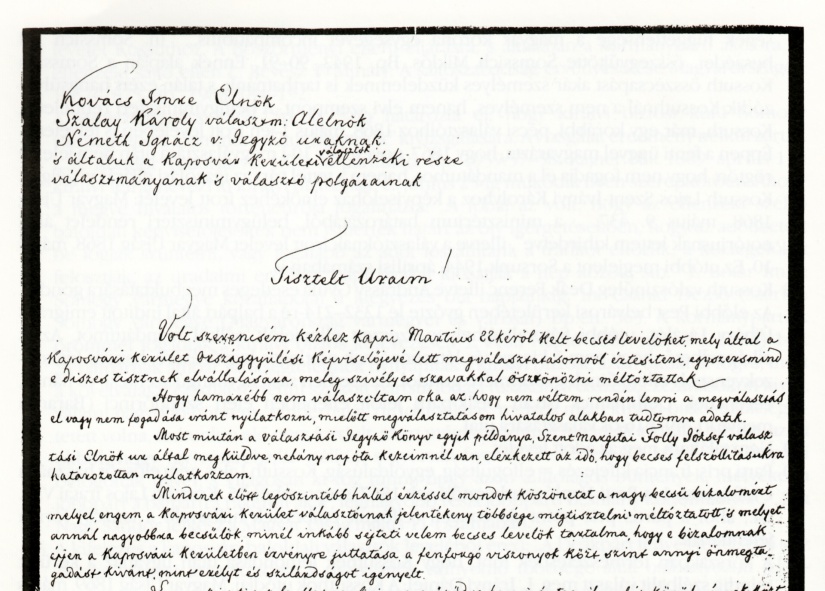 Kovács Imre Elnök
Szalay Károly választm: Alelnök
Németh Ignácz v. Jegyző uraknak
és általuk a Kaposvári kerület ellenzéki része
választmányának és választó polgárainak
Tisztelt Uraim!
Volt szerencsém kézhez kapni Martius 22kéről kelt becsés levelöket, mely által a
Kaposvári kerület Országgyülési Képviselőjévé lett megválasztatásomról értesíteni, egyszersmind
e díszes tisztnek elvállalására, meleg szívélyes szavakkal ösztönözni méltóztattak
Hogy hamarébb nem válaszoltam oka az, hogy nem véltem rendén lenni a megválasztás
el vagy nem fogadása iránt nyilatkozni, mielőtt megválasztatásom hivatalos alakban tudtomra adatik.
Most miután a választási Jegyző Könyv egyik példánya, Szent margitai Folly József válasz
tási Elnök ur által megküldve, nehány nap óta kezeimnél van, elérkezett az idő, hogy becses felszóllitásukra
határozottan nyilatkozzam.
Mindenek előtt legőszintébb hálás érzéssel mondok köszönetet a nagy becsű bizalomért
melyel engem a Kaposvári kerület választóinak jelentékeny többsége megtisztelni méltóztatott, s melyet
annál nagyobbra becsülök minél inkább sejteti velem becses levelök tartalma, hogy e bizalomnak
épen a Kaposvári Kerületben érvényre juttatása a fenforgó viszonyok közt szint annyi önmegta-
gadást kivánt, mint erélyt és szilárdságot igényelt.